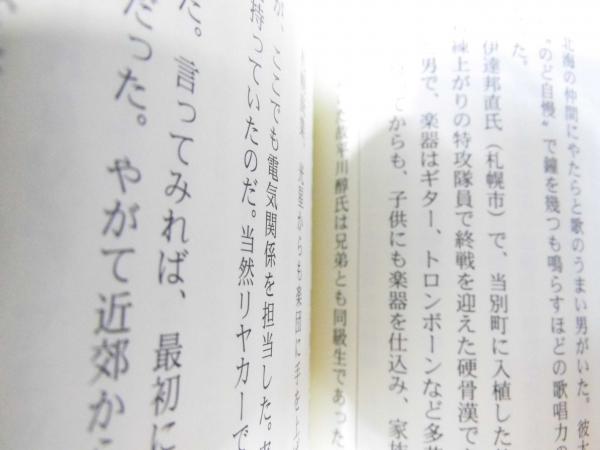 北海の仲間にやたらと歌のうまい男がいた。彼
"のど自慢"で鐘を幾つも鳴らすほどの歌唱力の
た。
伊達邦直氏（札幌市）で、当別町に入植した
練上がりの特攻隊員で終戦を迎えた硬骨漢で
男で、楽器はギター、トロンボーンなど多
てからも、子供にも楽器を仕込み、家族
川醇氏は兄弟とも同級生であった
からも楽団に手を上
が、ここでも電気関係を担当した。
持っていたのだ。当然リヤカーで
た。言ってみれば、最初に
だった。やがて近郊か